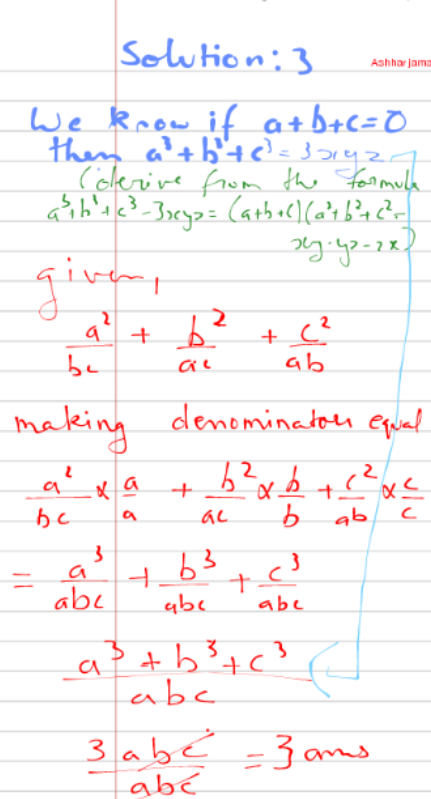 Solution: 3
Ashhar jama
We know if a+b+c=0
then a³+b³+c³=3xyz
(derive from the formula
a³+b³+c³-3xyz=(a+b+c)(a²+b²+c²-
xy-yz-zx)
given,
a²/bc + b²/ac + c²/ab
making denominators equal
a²/bc × a/a + b²/ac × b/b + c²/ab × c/c
= a³/abc + b³/abc + c³/abc
a³+b³+c³/abc
3abc/abc = 3 ans